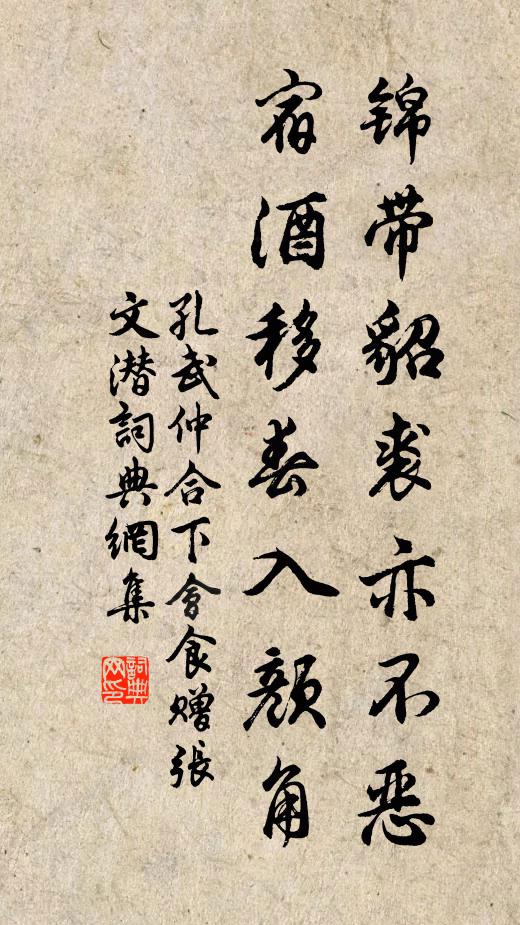 锦带貂裘亦不恶
宿酒移春入颜角
孔武仲合下會食赠張
文潜詞典網集
詞典
网印